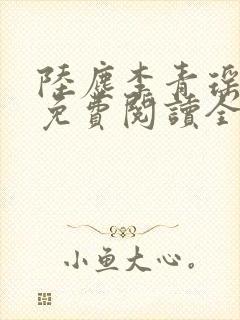 陸塵李青瑶
免費閱讀全
小鱼大心。